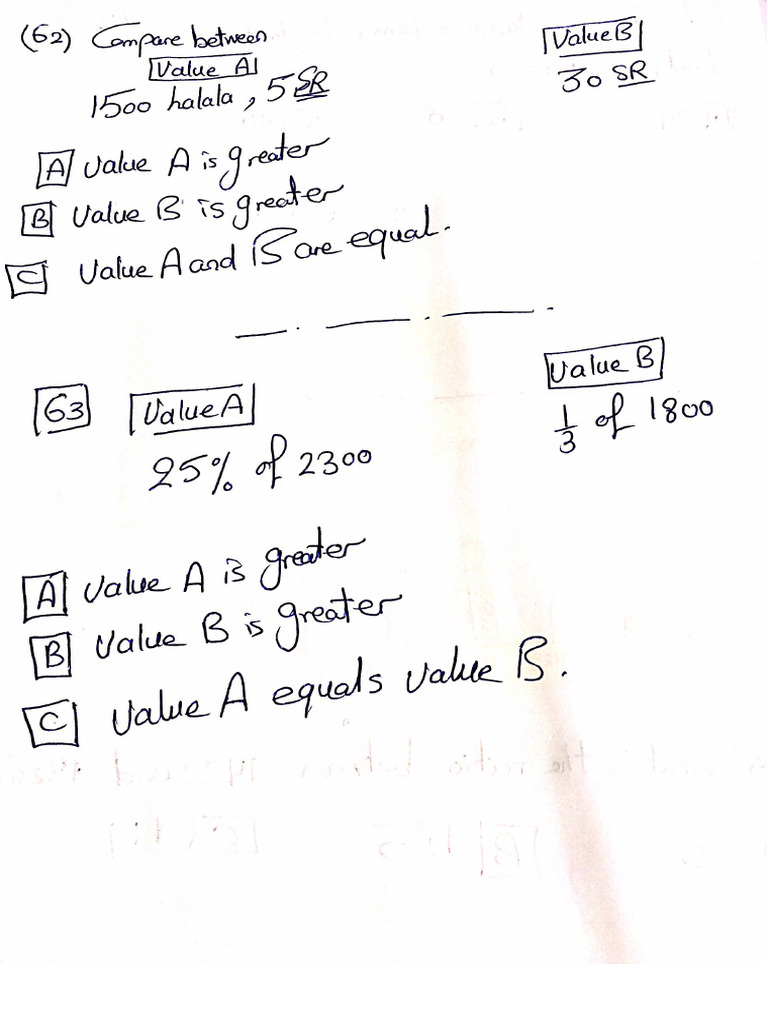 (62) Compare between
Value A
Value B
1500 halala , 5 SR
30 SR
A Value A is greater
B Value B is greater
C Value A and B are equal.
63 Value A
Value B
25% of 2300
1/3 of 1800
A Value A is greater
B Value B is greater
C Value A equals value B.